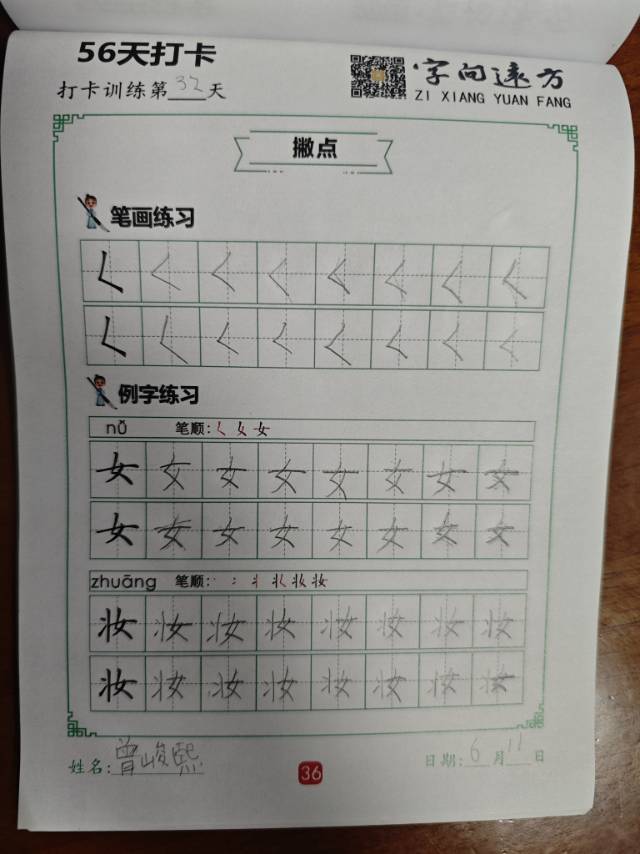 56天打卡
字向远方
打卡训练第32天
ZI XIANG YUAN FANG
撇点
笔画练习
𡿨 𡿨 𡿨 𡿨 𡿨 𡿨 𡿨 𡿨
𡿨 𡿨 𡿨 𡿨 𡿨 𡿨 𡿨 𡿨
例字练习
nǚ 笔顺: 𡿨 女 女
女 女 女 女 女 女 女 女
女 女 女 女 女 女 女 女
zhuāng 笔顺: 妆
妆 妆 妆 妆 妆 妆 妆 妆
妆 妆 妆 妆 妆 妆 妆 妆
姓名:曾峻熙
36
日期:6月11日